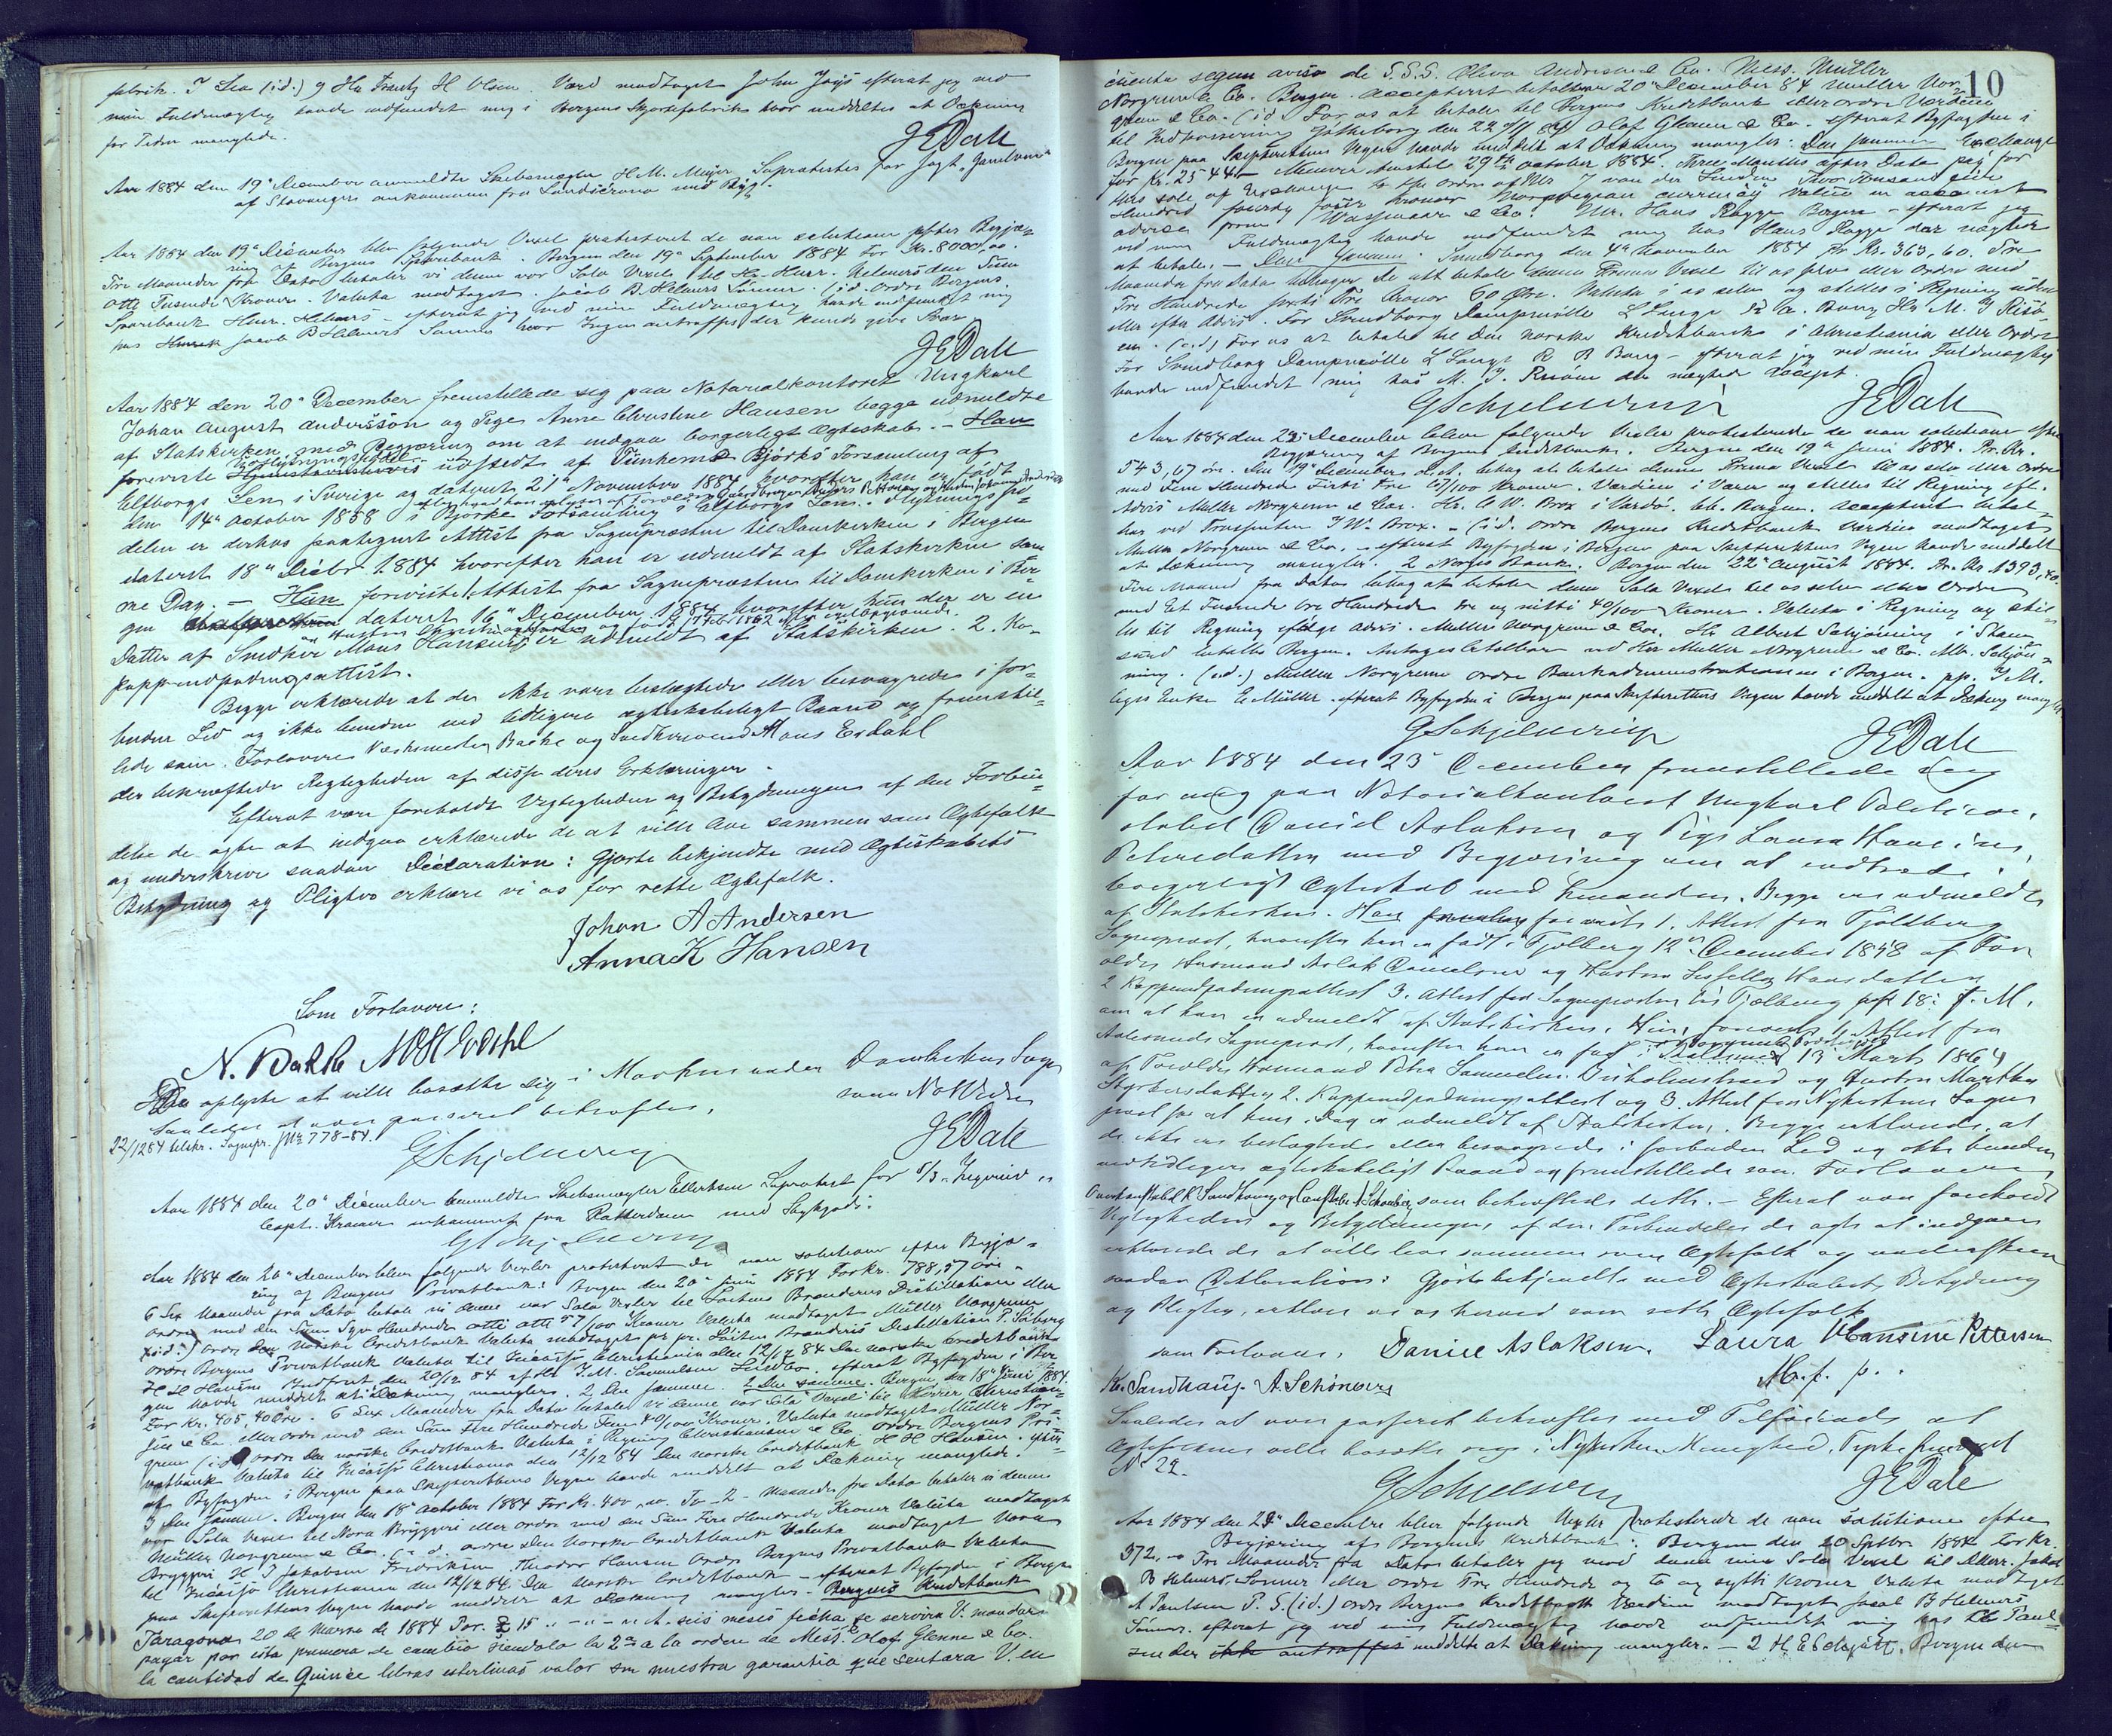 fabrik. I Lea (id.) g Hr Frantz H Olsen. Værd modtaget John Joys efterat jeg ved
min Fuldmægtig havde indfundet mig i Bergens Skjortefabrik hvor meddeltes at Dækning
for Tiden manglede.
JEDall
Aar 1884 den 19de December anmeldte Skibsmægler H. M. Meyer Søprotestes for Jagt
af Stavanger ankommen fra Landscrona med Byg.
Aar 1884 den 19de December blev følgende Vexel protesteret de non solutione efter Begjæ-
ring af Bergens Sparebank. Bergen den 19de September 1884 for Kr. 8000,00.
Tre Maaneder fra Dato betaler vi denne vor Sola Vexel til Hr. Henr. Helmers den Sum
Otte Tusende Kroner. Valuta modtaget. Jacob B. Helmers Sønner. (id. Ordre Bergens
Sparebank Henr. Helmers - efterat jeg ved min Fuldmægtig havde indfundet mig
hos Jacob B Helmers Sønner hvor Ingen antraffes der kunde give Svar.
JEDall
Aar 1884 den 20de December fremstillede sig paa Notarialkontoret Ungkarl
Johan August Andersson og Pige Anne Christine Hansen begge udmeldte
af Statskirken med Begjæring om at indgaa borgerligt Ægteskab. - Han
foreviste udstedt af Tünhems Bjørke Forsamling af
Elfborgs Len i Sverige og dateret 21de November 1884 hvorefter han er født
den 14de October 1858 i Bjørke Forsamling i Elfborgs Len. Flytningssed-
delen er derhos paategnet Attest fra Sognepræsten til Domkirken i Bergen
dateret 18de Decbr. 1884 hvorefter han er udmeldt af Statskirken sam-
me Dag. - Hun foreviste Attest fra Sognepræsten til Domkirken i Ber-
gen dateret 16de December 1884 hvorefter hun der er en
Datter af Snedker Mons Hansen er udmeldt af Statskirken. 2. Ko-
pappindpodningsattest.
Begge erklærede at de ikke vare beslægtede eller besvogrede i for-
buden Led og ikke bundne ved tidligere ægteskabeligt Baand og fremstil-
lede som Forlovere Værksmester Bakke og Snedkersvend Mons Evdahl
der bekræftede Rigtigheden af disse deres Erklæringer.
Efterat være foreholdt Vigtigheden og Betydningen af den Forbin-
delse de agte at indgaa erklærede de at ville leve sammen som Ægtefolk
og underskrive saadan Declaration: Gjorte bekjendte med Ægteskabets
Betydning og Pligter erklære vi os for rette Ægtefolk.
Johan A Andersen
Anna K Hansen
Som Forlovere:
N. Bakke
De oplyste at ville bosætte sig i Marken under Domkirkens Sogn
Saaledes at være passeret bekræftes.
22/12 84 tilskr. Sognepr. J No 778-84.
GSchjelderup
JEDall
Aar 1884 den 20de December anmeldte Skibsmægler Ellertsen Søprotest for S/S
Capt. Kroner ankommet fra Rotterdam med Stykgods.
GSchjelderup
Aar 1884 den 20de December blev følgende Vexler protesteret de non solutione efter Begjæ-
ring af Bergens Privatbank: Bergen den 20de Juni 1884 For Kr. 788,57 øre.
6 Sex Maaneder fra Dato betale vi denne vor Sola Vexel til Løitens Brænderis Distillation eller
Ordre med den Sum Syv Hundrede otti otte 57/100 Kroner Valuta modtaget Müller Norgreen
(id.) Ordre Den Norske Creditbank Valuta modtaget pr pr. Løiten Brænderis Destillation P. Søberg
Ordre Bergens Privatbank Valuta til Incasso Christiania den 12/12 84 Den norske Creditbank
H H Hansen Indfriet den 20/12 84 af Hr. I.M. Samuelsen efterat Byfogden i Ber-
gen havde meddelt at Dækning manglers. 2 Den samme. Bergen den 18de Juni 1884
For Kr. 405,40 øre. 6 Sex Maaneder fra Dato betale vi denne vor Sola Vexel til Christian-
sen & Co. eller Ordre med den Sum Fire Hundrede Fem 40/100 Kroner. Valuta modtaget Müller Nor-
green (id.) Ordre Den norske Creditbank Valuta i Regning Christiansen & Co. Ordre Bergens Pri-
vatbank Valuta til Incasso Christiania den 12/12 84 Den norske Creditbank H H Hansen. efter
at Byfogden i Bergen paa Skifterettens Vegne havde meddelt at Dækning manglede.
3 Den Samme. Bergen den 18de October 1884 For Kr. 400,00. To - 2 - Maaneder fra Dato betaler vi denne
vor Sola Vexel til Nora Bryggeri eller Ordre med den Sum Fire Hundrede Kroner Valuta modtaget
Müller Norgreen & Co. (id. Ordre Den Norske Creditbank Valuta modtaget Nora
Bryggeri H I Jakobsen Fredriksen Theodor Hansen Ordre Bergens Privatbank Valuta
til Incasso Christiania den 12/12 84. Den norske Creditbank - efterat Byfogden i Bergen
paa Skifterettens Vegne havde meddelt at Dækning mangler. Bergens Kreditbank
Taragona 20 de Marso de 1884 Por £ 15 A seis meses fecha se servira V. mandar
pagar por esta primera de cambio siendola la 2a a la ordere de Mess. Olof Glenne & Co.
la cantidad de Quince libras esterlinas valor en nuestra garantia que sentara V. en
10
cuenta segun aviso de S.S.S. Oliva Andresen & Co. Mess. Müller
Norgreen & Co. Bergen. Accepteret betalbar 20de December 84 Müller Nor-
green & Co. (id. For os at betale til Bergens Kreditbank eller Ordre Værdien
til Indkassering Götheborg den 22/11 84 Olof Glenne & Co. efterat Byfogden i
Bergen paa Skifterettens Vegne havde meddelt at Dækning mangler. Den samme Exchange
for Kr. 2544 - Amstel 29th October 1884. Three Months after Date pay for
this sole of Exchange to the Ordre of Mr J van der Linden Two Tousand five
Hundred fourty four Kroner Norvegian currency Value in account
advice from Wassenaar & Co. Mr. Hans Rogge Bergen - efterat jeg
ved min Fuldmægtig havde indfundet mig hos Hans Rogge der nægter
at betale. - Den Samme. Svendborg den 4de November 1884 Pr Kr. 363,60. Tre
Maaneder fra Dato behager De att betale denne Prima Vexel til os selv eller Ordre med
Tre Hundrede sexti Tre Kroner 60 Øre. Valuta i os selv og stilles i Regning uden
eller efter Advis. For Svendborg Dampmølle L Lange R. B. Bang Hr M. J Risø-
en. (id.) For os at betale til Den norske Kreditbank i Christiania eller Ordre
For Svendborg Dampmølle L Lange R B Bang - efterat jeg ved min Fuldmægtig
havde indfundet mig hos M. J. Risøen der nægtede Accept.
GSchjelderup JEDall
Aar 1884 den 22de December bleve følgende Vexler protesterede de non solutione efter
Begjæring af Bergens Kreditbank. Bergen den 19de Juni 1884. Pr. Kr.
543,67 øre. Den 19de December d.A. behag at betale denne Prima Vexel til os selv eller Ordre
med Fem Hundrede Firti Tre 67/100 Kroner. Værdien i Varer og stilles til Regning eft.
Advis Müller Norgreen & Co. Hr. C. W. Brox i Vardø. bb. Bergen. Accepteret betal-
bar ved Transporten J W. Brox. - (id. Ordre Bergens Kreditbank Værdien modtaget
Müller Norgreen & Co. - efterat Byfogden i Bergen paa Skifterettens Vegne havde meddelt
at Dækning mangler. 2 Norges Bank. Bergen den 22de August 1884. Pr. Kr. 1393,40.
Fire Maaned fra Dato behag at betale denne Sola Vexel til os selv eller Ordre
med Et Tusende tre Hundrede tre og nitti 40/100 Kroner. Valuta i Regning og stil-
les til Regning ifølge Advis. Müller Norgreen & Co. Hr Albert Schjøning i
sund betalbar Bergen. Antages betalbar ved Hr Müller Norgreen & Co. Alb. Schjøn-
ning. (id.) Müller Norgreen Ordre Bankadministrationen i Bergen. pp. J M.
Enke E Müller. efterat Byfogden i Bergen paa Skifterettens Vegne havde meddelt at Dækning mangler
GSchjelderup JEDall
Aar 1884 den 23 December fremstillede sig
for mig paa Notarialkontoret Ungkarl Politicon-
stabel Daniel Aslaksen og Pige Laura Hansine
Petersdatter med Begjæring om at indtræde i
borgerligt Ægteskab med hinanden. Begge ere udmeldte
af Statskirken. Han foreviste 1. Attest fra Fjelberg
Sognepræst, hvorefter han er født i Fjelberg 12te December 1848 af For-
ældre Husmand Aslak Danielsen og Hustru Hansdatter
2 Koppeindpodningsattest 3. Attest fra Sognepræsten til Fjelberg af 18. f. M.
om at han er udmeldt af Statskirken. Hun foreviste 1. Attest fra
Aalesunds Sognepræst, hvorefter hun er født i 13 Marts 1864
af Forældre Husmand Peter Samuelsen og Hustru Marthe
2. Koppeindpodningsattest og 3. Attest fra Nykirkens Sogne-
præst for at hun i Dag er udmeldt af Statskirken. Begge erklærede at
de ikke ere beslægtede eller besvogrede i forbuden Led og ikke bundne
ved tidligere ægteskabeligt Baand og fremstillede som Forlovere
K Sandhaug og A Schønberg som bekræftede dette. - Efterat være foreholdt
Vigtigheden og Betydningen af den Forbindelse de agte at indgaa
erklærede de at ville leve sammen som Ægtefolk og underskrev
saadan Declaration: Gjorte bekjendte med Ægteskabets Betydning
og Pligter, erklære vi os herved som rette Ægtefolk
som Forlovere. Daniel Aslaksen. Laura Hansine Pettersen
M. f. p.
K. Sandhaug. A. Schönberg
Saaledes at være passeret bekræftes med Tilføiende at
Ægtefolkene ville bosætte sig i Nykirkens Menighed.
No 22.
GSchjelderup JEDall
Aar 1884 den 23de Decembre blev følgende Vexler protesterede de non solutione efter
Begjæring af Bergens Kreditbank: Bergen den 20 Septbr. 1884 For Kr.
372,00 Tre Maaneder fra Dato betaler jeg mod denne min Sola Vexel til DHerr. Jakob
B Helmers Sønner eller Ordre Tre Hundrede og to og sytti Kroner Valuta modtaget
A Paulsen P. T. (id.) Ordre Bergens Kreditbank Værdien modtaget Jacob B Helmers
Sønner. efterat jeg ved min Fuldmægtig havde indfundet mig hos Paul-
sen der ikke antraffes meddelte at Dækning mangler. - 2 H. E Schjøtt. Bergen den